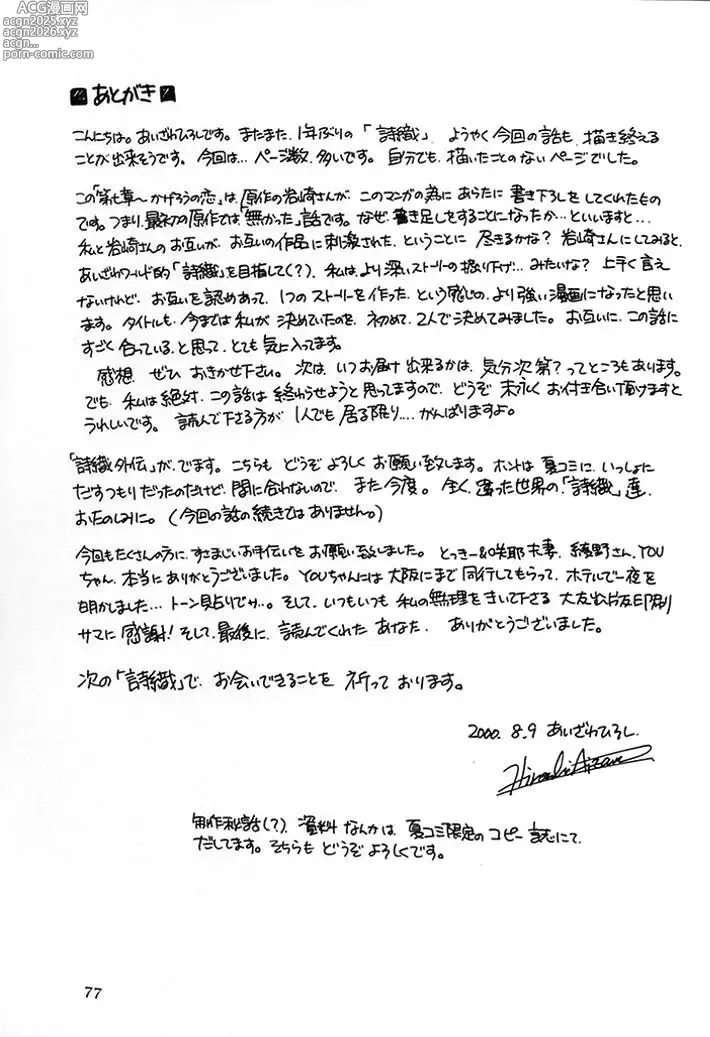 ACG漫画网
acgn2025.xyz
acgn2026.xyz
acgn...
porn-comic.com
あとがき
こんにちは。あいざわひろしです。またまた、1年ぶりの「詩織」 ようやく今回の話も、描き終える
ことが出来そうです。今回は…ページ数、多いです。自分でも、描いたことのないページでした。
この「第七章〜かげろうの恋」は、原作の岩崎さんが、このマンガの為にあらたに書き下ろしをしてくれたもの
です。つまり、最初の原作では「無かった」話です。なぜ、書き足しをすることになったか…といいますと…
私と岩崎さんのお互いが、お互いの作品に刺激された、ということに尽きるかな？岩崎さんにしてみると、
あいざわワールド的「詩織」を目指して(?)、私は、より深いストーリーの掘り下げ…みたいな？上手く言え
ないけれど、お互いを認めあって、1つのストーリーを作った、という感じの、より強い漫画になったと思い
ます。タイトルも、今までは私が決めていたのを、初めて、2人で決めてみました。お互いに、この話に
すごく合っている、と思って、とても気に入ってます。
感想、ぜひ おきかせ下さい。次は、いつお届け出来るかは、気分次第？ってところもあります。
でも、私は絶対、この話は終わらせようと思ってますので、どうぞ末永くお付き合い頂けますと
うれしいです。読んで下さる方が1人でも居る限り…がんばりますよ。
「詩織外伝」が、でます。こちらも どうぞよろしくお願い致します。ホントは夏コミに、いっしょに
だすつもりだったのだけど、間に合わないので、また今度。全く違った世界の、「詩織」達、
おたのしみに。(今回の話の続きではありません。)
今回もたくさんの方に、すさまじいお手伝いをお願い致しました。とっきー&咲耶夫妻、綾野さん、YOU
ちゃん、本当にありがとうございました。YOUちゃんには大阪にまで同行してもらって、ホテルで一夜を
明かしました…トーン貼りでサ…。そして、いつもいつも私の無理をきいて下さる 大友出版印刷
サマに感謝！そして、最後に、読んでくれたあなた、ありがとうございました。
次の「詩織」で、お会いできることを祈っております。
2000. 8.9 あいざわひろし.
Hiroshi Aizawa
制作秘話(?)、資料なんかは、夏コミ限定のコピー誌にて、
だしてます。そちらもどうぞよろしくです。
77